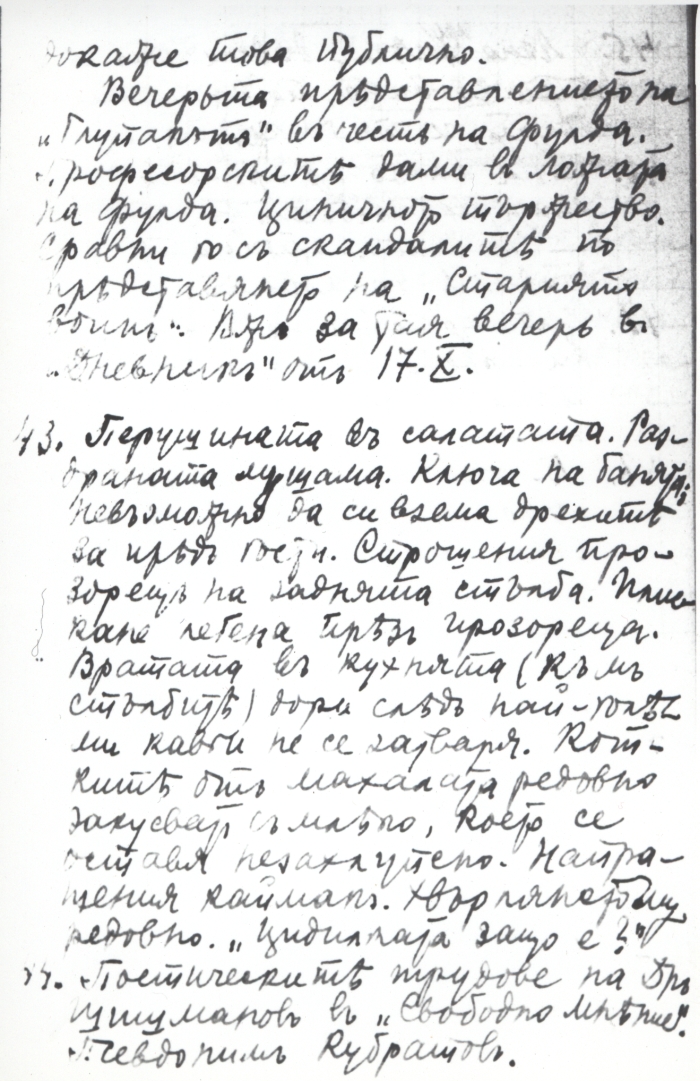 докаже това публично.
Вечерьта прѣдставлението на
„Глупакътъ" въ честь на Фулда.
Професорскитѣ дами в ложата
на Фулда. Циничното тържество.
Сравни го съ скандалитѣ по
прѣдставянето на „Стариятъ
воинъ". Вжъ за тая вечерь въ
„Дневникъ" отъ 17.X.
43. Перушината въ салатата. Раз-
драната мушама. Ключа на банята;
невъзможно да си взема дрехитѣ
за прѣдъ гости. Строшения про-
зорецъ на заднята стълба. Плис-
кане легена прѣзъ прозореца.
Вратата въ кухнята (къмъ
стълбитѣ) дори слѣдъ най-голѣ-
ми кавги не се затваря. Кот-
китѣ отъ махалата редовно
закусватъ съ млѣко, което се
оставя незахлупено. Напра-
щения каймакъ. Хвърлянето му
редовно. „Цидилката защо е?"
Поетическитѣ трудове на Дръ
Шишмановъ въ „Свободно мнѣние".
Псевдонимъ Кубратовъ.